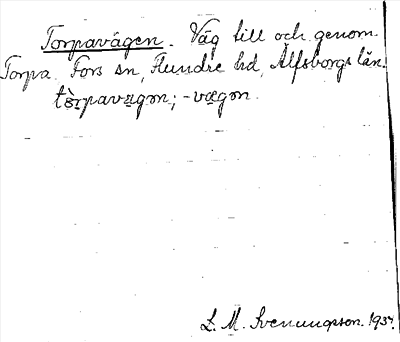 Torpavägen. Väg till och genom
Torpa. Fors sn, Flundre hd, Älfsborgs län.
tòrpavægən; -vægən.
L. M. Svenungsson. 1934.